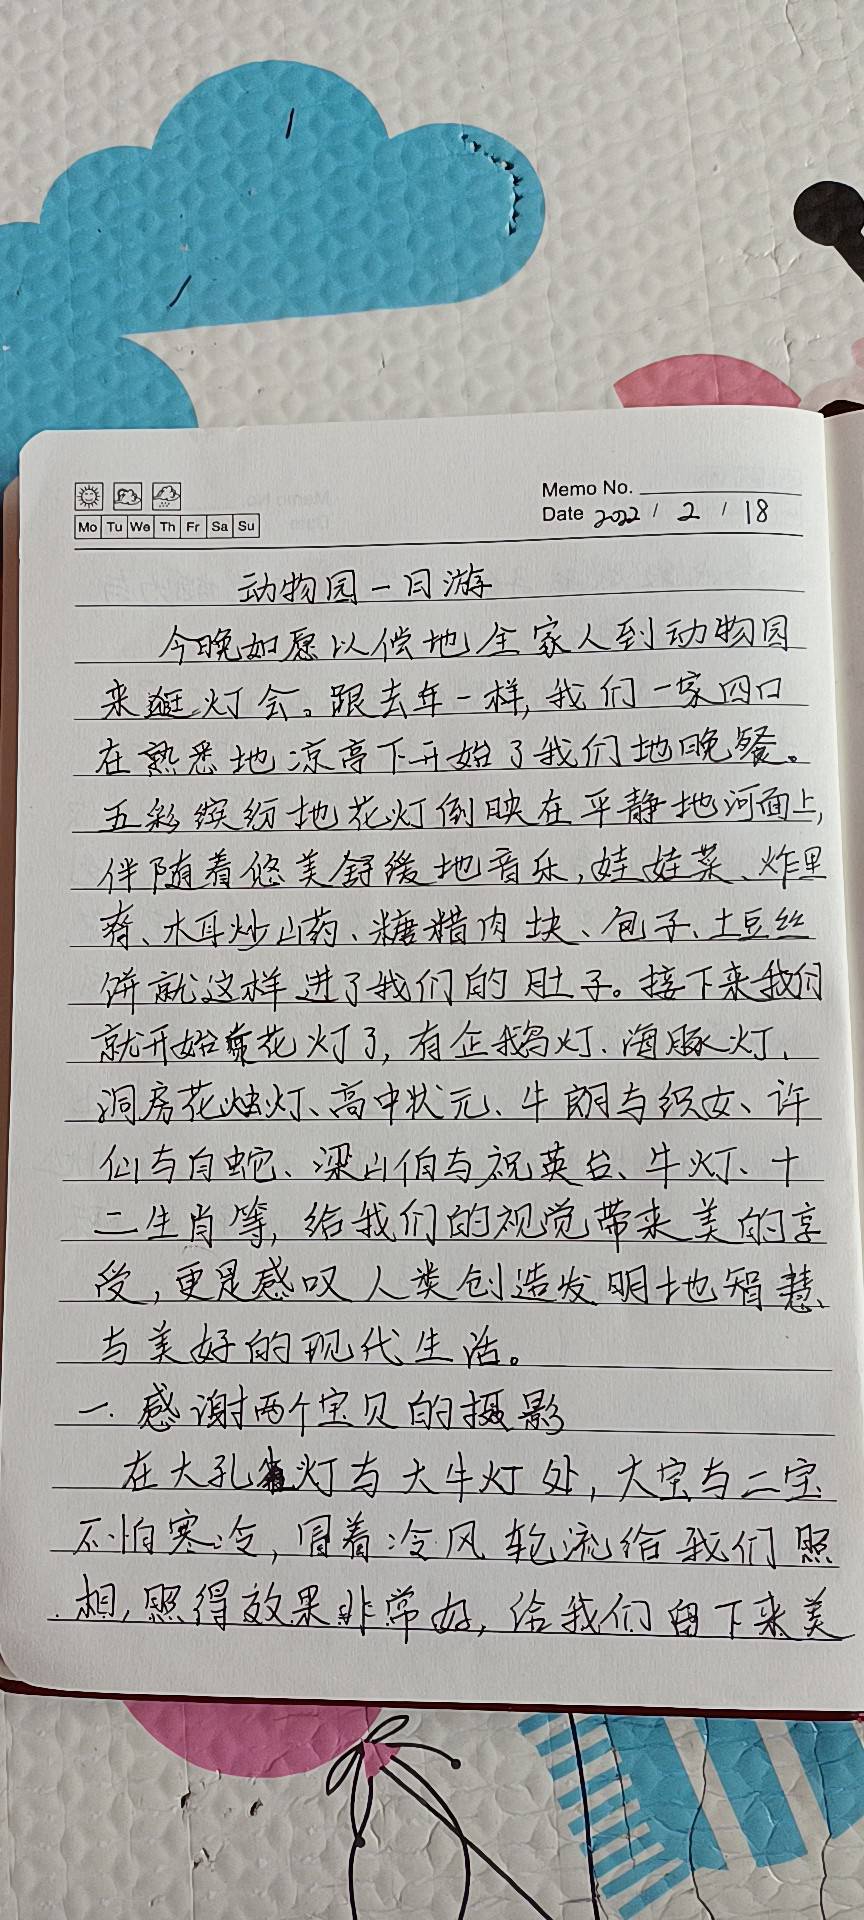 Memo No.
Mo Tu We Th Fr Sa Su
Date 2022 / 2 / 18
动物园一日游
今晚如愿以偿地全家人到动物园
来逛灯会。跟去年一样,我们一家四口
在熟悉地凉亭下开始了我们地晚餐。
五彩缤纷地花灯倒映在平静地河面上,
伴随着悠美舒缓地音乐,娃娃菜、炸里
脊、木耳炒山药、糖醋肉块、包子、土豆丝
饼就这样进了我们的肚子。接下来我们
就开始赏花灯了,有企鹅灯、海豚灯、
洞房花烛灯、高中状元、牛朗与织女、许
仙与白蛇、梁山伯与祝英台、牛灯、十
二生肖等,给我们的视觉带来美的享
受,更是感叹人类创造发明地智慧、
与美好的现代生活。
一.感谢两个宝贝的摄影
在大孔雀灯与大牛灯处,大宝与二宝
不怕寒冷,冒着冷风轮流给我们照
相,照得效果非常好,给我们留下来美